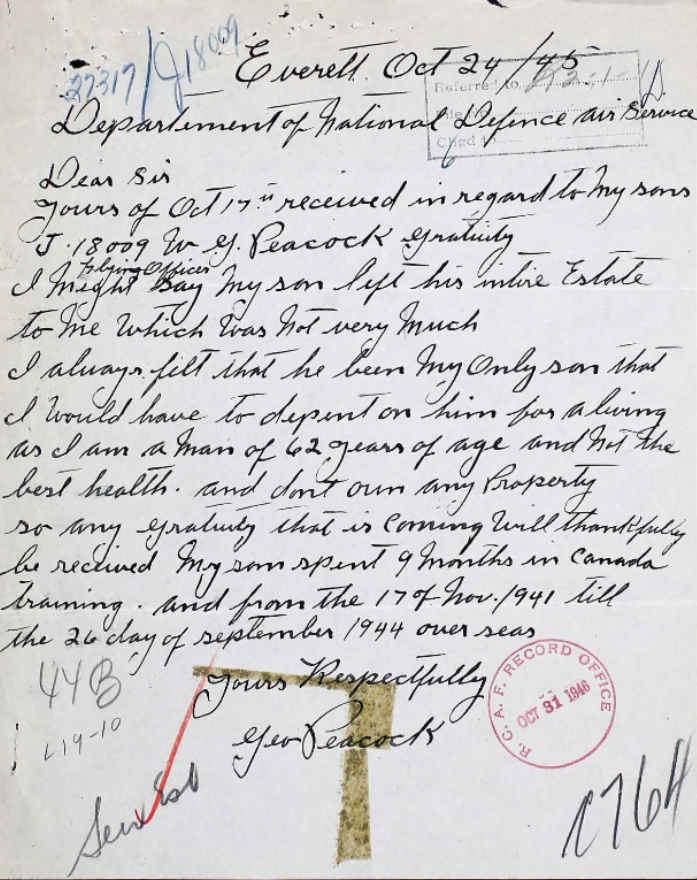 27317/J18009
Everett. Oct 24/45
Referred to
Chgd to
Departement of National Defence air Service
Dear Sir
Yours of Oct 17th received in regard to My sons
J. 18009 W G. Peacock gratuity
Flying Officer
I Might say My son left his intire Estate
to Me Which Was Not very Much
I always felt that he been My Only son that
I Would have to depent on him for a living
as I am a Man of 62 years of age and Not the
best health. and dont own any Property
so any gratuity that is Coming Will thankfully
be received My son spent 9 Months in Canada
training. and from the 17 of Nov. 1941 till
the 26 day of september 1944 over seas
Yours Respectfully
Geo Peacock
44B
L19-10
R.C.A.F. RECORD OFFICE
OCT 31 1946
1764